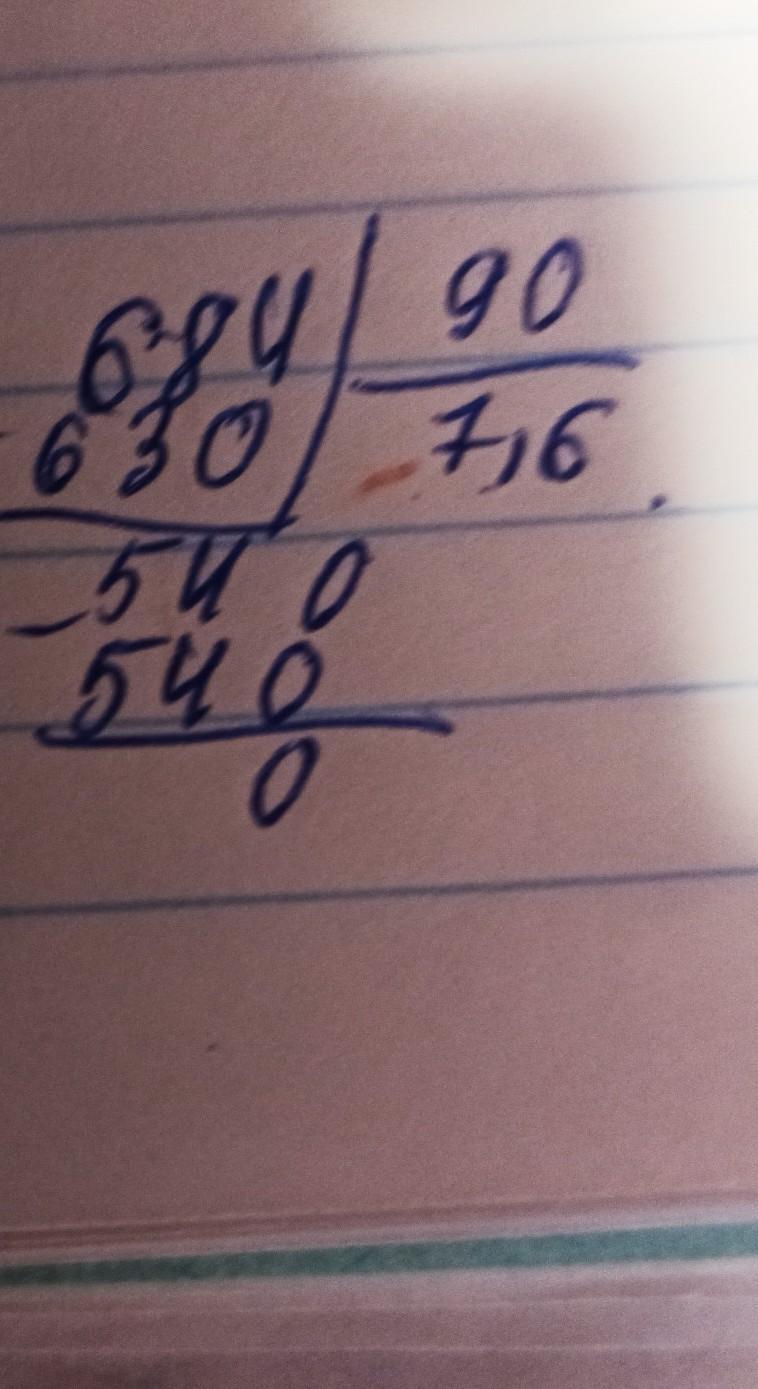 684 | 90
- 630 | 7,6
- 540
540
0